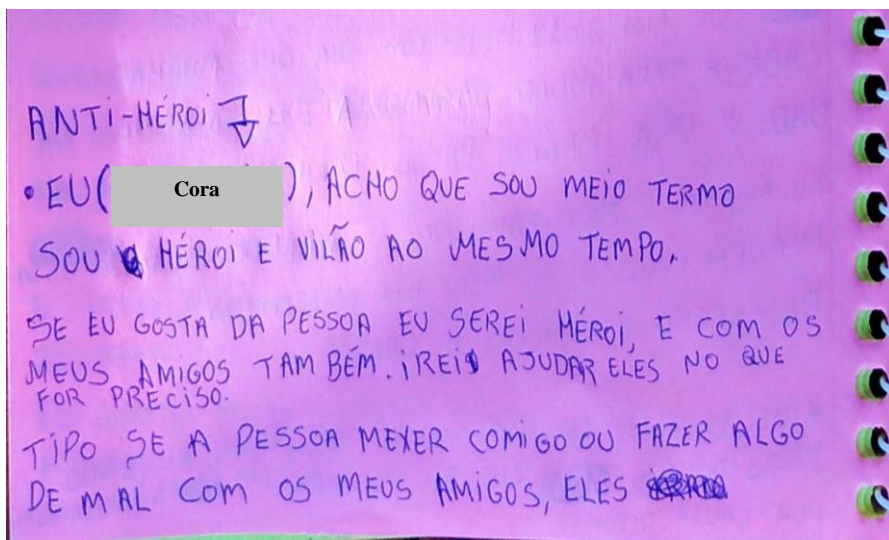 ANTI-HÉROI
• EU( Cora ), ACHO QUE SOU MEIO TERMO
SOU HÉROI E VILÃO AO MESMO TEMPO.
SE EU GOSTA DA PESSOA EU SEREI HÉROI, E COM OS
MEUS AMIGOS TAMBÉM. IREI AJUDAR ELES NO QUE
FOR PRECISO.
TIPO SE A PESSOA MEXER COMIGO OU FAZER ALGO
DE MAL COM OS MEUS AMIGOS, ELES